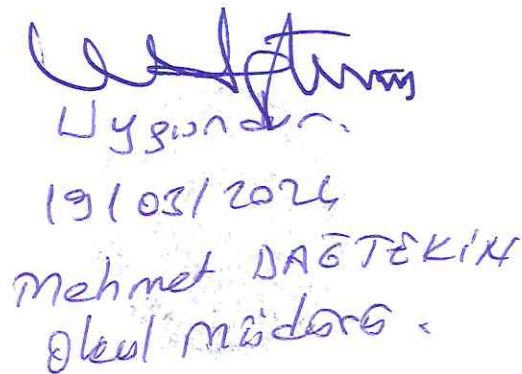 Uygundur.
19/03/2024
Mehmet DAĞTEKİN
Okul Müdürü.